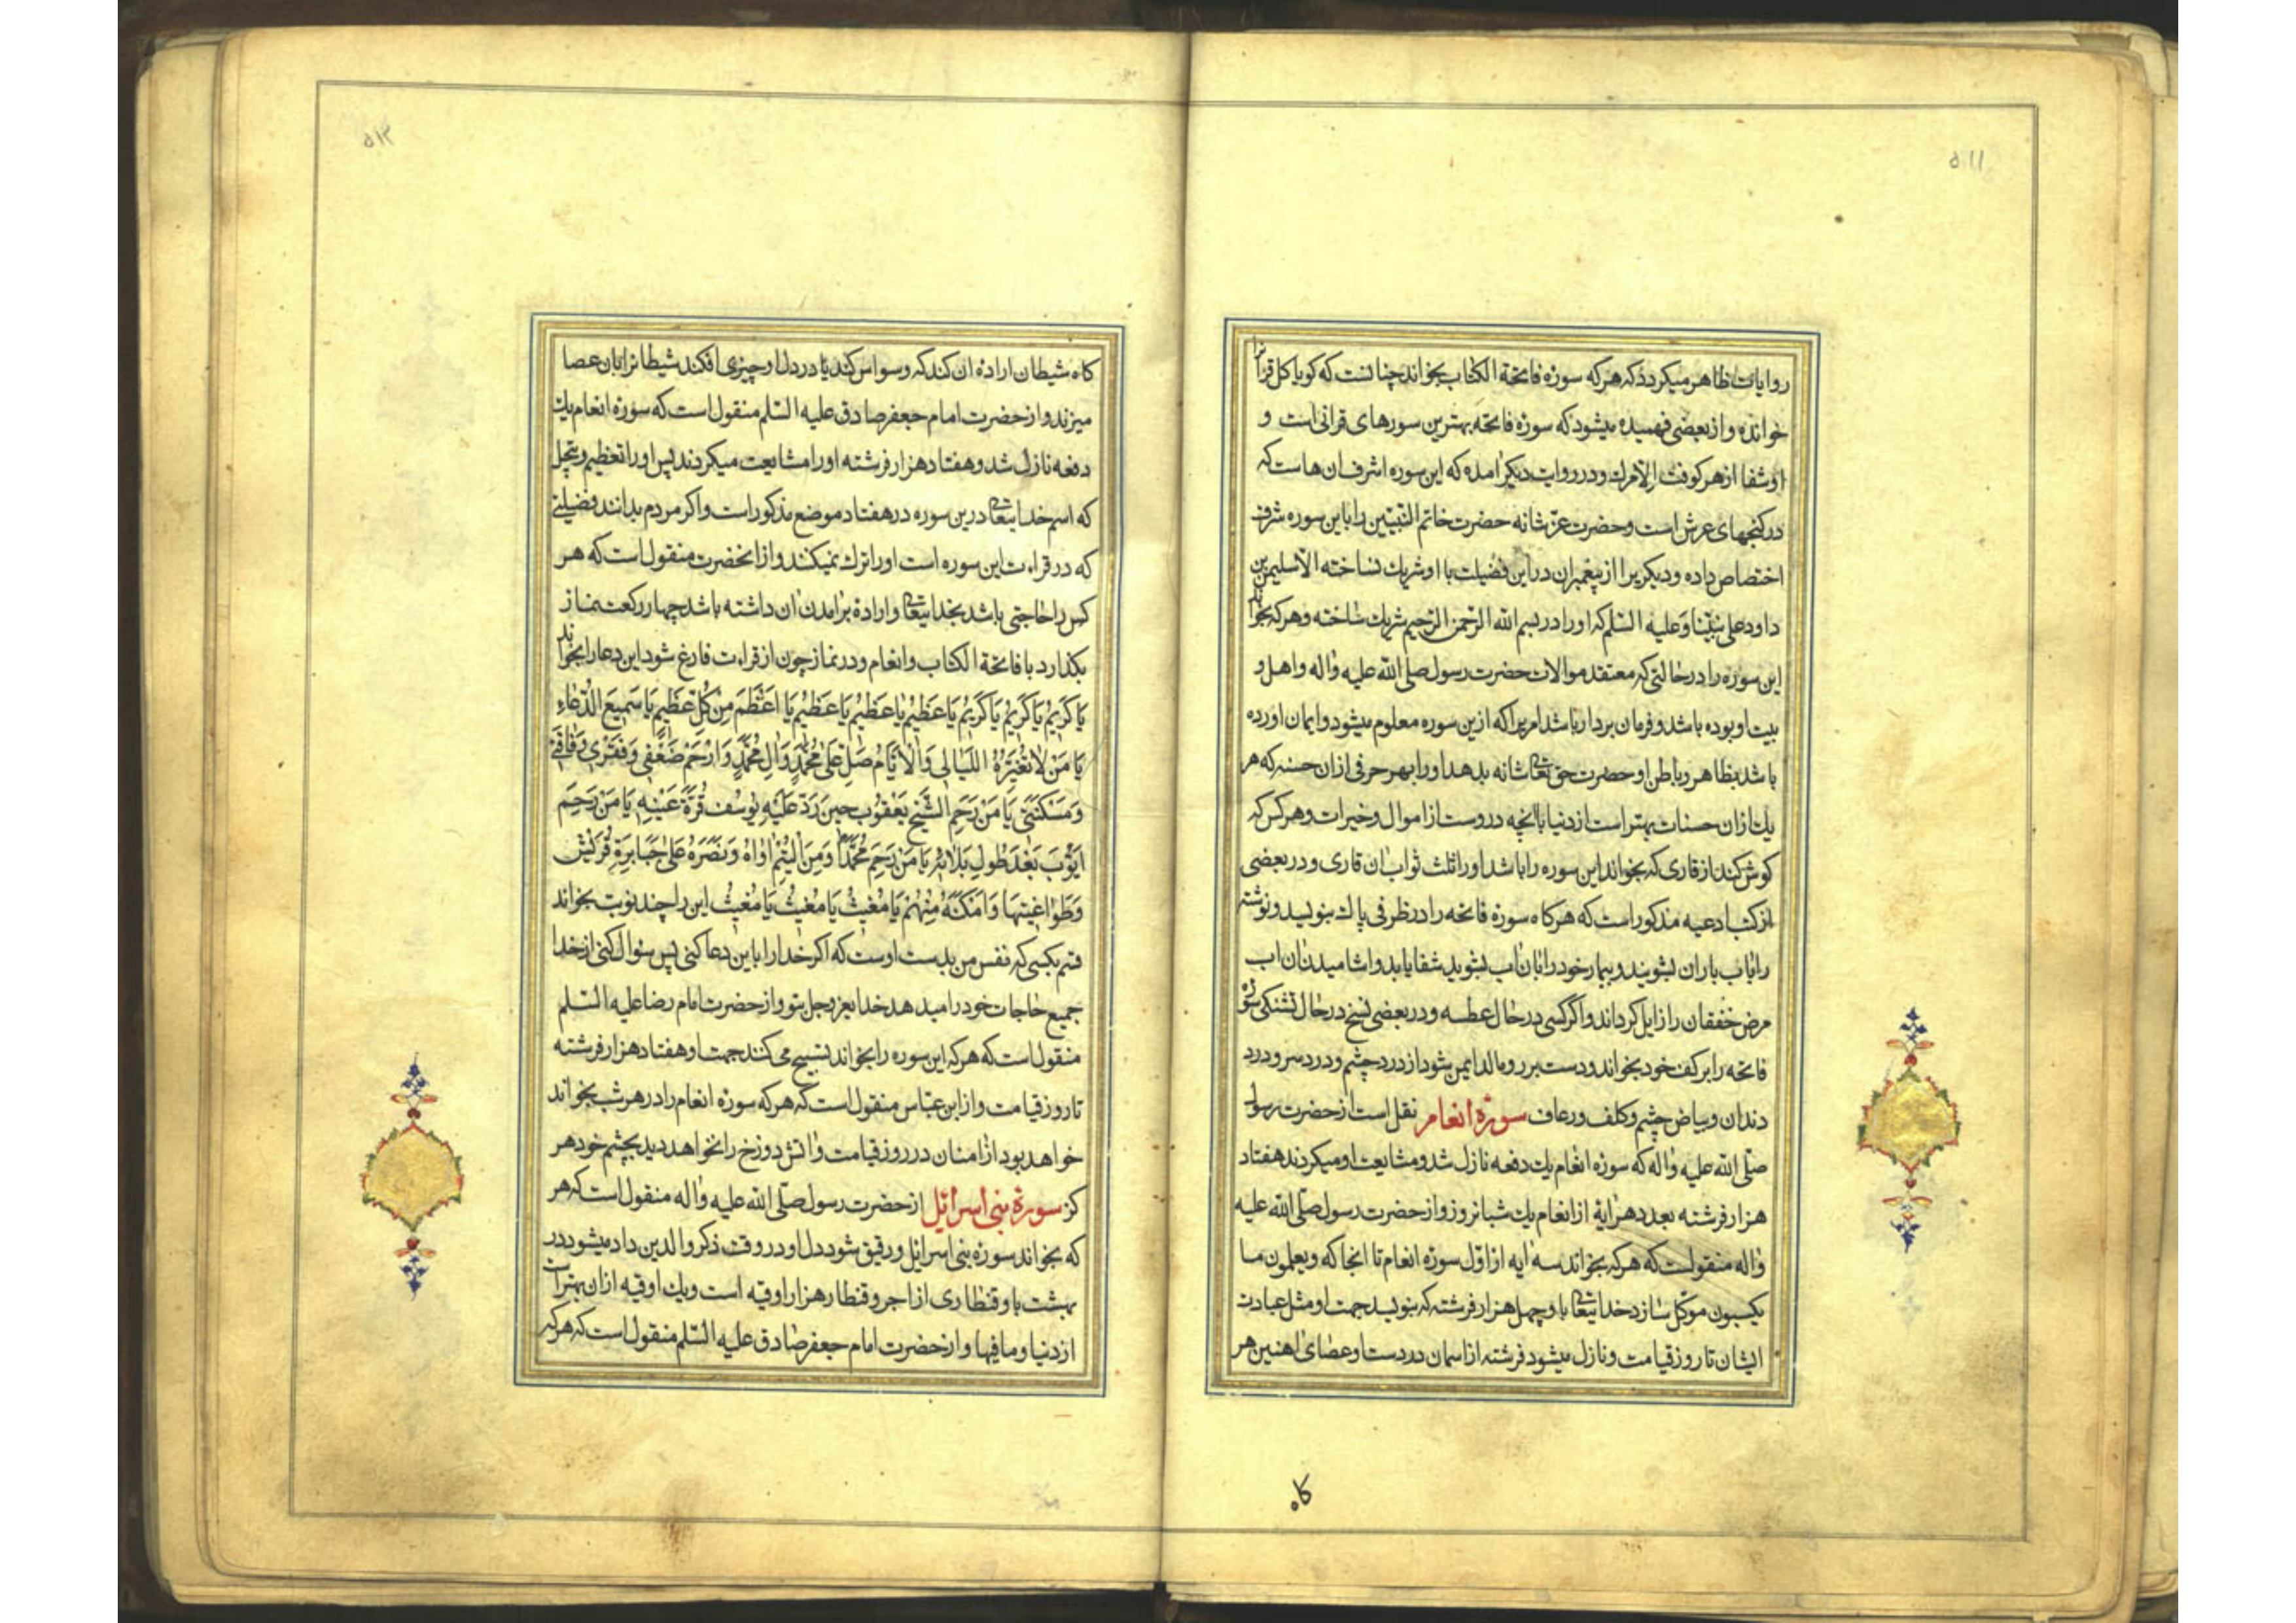 ۵۱۱
روایات ظاهر میکردد که هرکه سورۀ فاتحة الکتاب بخواند چنانست که کویا کل قرانرا
خوانده و از بعضی فهمیده میشود که سورۀ فاتحه بهترین سورهای قرانی است و
او شفا از هر کوفت الامرك و در روایت دیکر امده که این سوره اشرف ان هاست که
در کنجهای عرش است و حضرت عزّ شانه حضرت خاتم النبیّین را باین سوره شرف
اختصاص داده و دیکریرا از پیغمبران در این فضیلت با او شریك نساخته الا سلیمن بن
داود علی نبیّنا و علیه السّلم که او را در بسم الله الرّحمن الرّحیم شریك ساخته و هرکه بخواند
این سوره را در حالتی که معتقد موالات حضرت رسول صلی الله علیه واله و اهل
بیت او بوده باشد و فرمان بردار باشد امریرا که ازین سوره معلوم میشود و ایمان اورده
باشد بظاهر و باطن او حضرت حق تعالی شانه بدهد او را بهر حرفی ازان حسنه که هر
یك ازان حسنات بهتر است از دنیا باانچه دروست از اموال و خیرات و هرکس که
کوش کند از قاری که بخواند این سوره را باشد او را ثلث ثواب ان قاری و در بعضی
از کتب ادعیه مذکور است که هرکاه سورۀ فاتحه را در ظرفی پاك بنویسد و نوشته
را باب باران بشویند و بیمار خود را بان اب بشوید شفا یابد و اشامیدن ان اب
مرض خفقان را زایل کرداند و اگر کسی در حال عطسه و در بعضی نسخ در حال تشنکی سورۀ
فاتحه را بر کف خود بخواند و دست بر رو مالد ایمن شود از درد چشم و درد سر و درد
دندان و بیاض چشم و کلف و رعاف سورۀ انعام نقل است از حضرت رسول
صلّی الله علیه واله که سورۀ انعام یك دفعه نازل شد و مشایعت او میکردند هفتاد
هزار فرشته بعدد هر ایۀ از انعام یك شبانروز و از حضرت رسول صلّی الله علیه
واله منقولست که هرکه بخواند سه ایه از اوّل سورۀ انعام تا انجا که و یعلمون ما
یکسبون موکّل سازد خدایتعالی باو چهل هزار فرشته که بنویسد جهت او مثل عبادت
ایشان تا روز قیامت و نازل میشود فرشته از اسمان در دست او عصای اهنین هر
کاه
۵۱۲
کاه شیطان ارادۀ ان کند که وسواس کند یا در دل او چیزی افکند شیطانرا بان عصا
میزند و از حضرت امام جعفر صادق علیه السّلم منقول است که سورۀ انعام یك
دفعه نازل شد و هفتاد هزار فرشته او را مشایعت میکردند پس او را تعظیم و تبجیل
که اسم خدایتعالی درین سوره در هفتاد موضع مذکور است و اکر مردم بدانند فضیلتی
که در قراءت این سوره است او را ترك نمیکنند و از انحضرت منقول است که هر
کس را حاجتی باشد بخدایتعالی و ارادۀ برامدن ان داشته باشد چهار رکعت نماز
بکذارد با فاتحة الکتاب و انعام و در نماز چون از قراءت فارغ شود این دعا را بخواند
یَا کَرِیمُ یَا کَرِیمُ یَا کَرِیمُ یَا عَظِیمُ یَا عَظِیمُ یَا عَظِیمُ یَا اَعْظَمَ مِنْ کُلِّ عَظِیمٍ یَا سَمِیعَ الدُّعَاءِ
یَا مَنْ لَا تُغَیِّرُهُ اللَّیَالِی وَالْاَیَّامُ صَلِّ عَلَی مُحَمَّدٍ وَالِ مُحَمَّدٍ وَارْحَمْ ضَعْفِی وَفَقْرِی وَفَاقَتِی
وَمَسْکَنَتِی یَا مَنْ رَحِمَ الشَّیْخَ یَعْقُوبَ حِینَ رَدَّ عَلَیْهِ یُوسُفَ قُرَّةَ عَیْنِهِ یَا مَنْ رَحِمَ
اَیُّوبَ بَعْدَ طُولِ بَلَائِهِ یَا مَنْ رَحِمَ مُحَمَّدًا وَمِنَ الْیُتْمِ اوَاهُ وَنَصَرَهُ عَلَی جَبَابِرَةِ قُرَیْشٍ
وَطَوَاغِیتِهَا وَاَمْکَنَهُ مِنْهُمْ یَا مُغِیثُ یَا مُغِیثُ یَا مُغِیثُ این را چند نوبت بخواند
قسم بکسی که نفس من بدست اوست که اکر خدا را باین دعا کنی پس سئوال کنی از خدا
جمیع حاجات خود را میدهد خدایعزوجل بتو و از حضرت امام رضا علیه السّلم
منقول است که هرکه این سوره را بخواند تسبیح می کنند جهت او هفتاد هزار فرشته
تا روز قیامت و از ابن عبّاس منقول است که هرکه سورۀ انعام را در هر شب بخواند
خواهد بود از امنان در روز قیامت و اتش دوزخ را نخواهد دید بچشم خود هر
کز سورۀ بنی اسرائیل از حضرت رسول صلّی الله علیه واله منقول است که هر
که بخواند سورۀ بنی اسرائیل و رقیق شود دل او در وقت ذکر والدین داد میشود در
بهشت باو قنطاری از اجر و قنطار هزار اوقیه است و یك اوقیه ازان بهتر است
از دنیا و ما فیها و از حضرت امام جعفر صادق علیه السّلم منقول است که هرکه